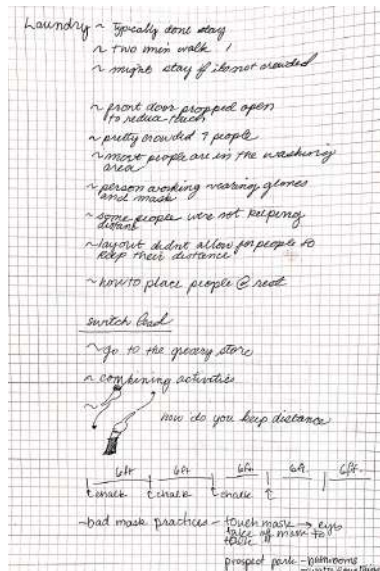 Laundry ~ typically dont stay
~ two men walk
~ might stay if its not crowded
~ front door propped open
to reduce touch
~ pretty crowded 7 people
~ most people are in the washing
area
~ person working wearing gloves
and mask
~ some people were not keeping
distant
~ layout didnt allow for people to
keep their distance
~ how to place people @ rest
switch load
~ go to the grocery store
~ combining activities
~
how do you keep distance
6ft 6ft 6ft 6ft. 6ft.
chalk chalk chalk
~ bad mask practices ~ touch mask → eyes
take off mask to
prospect park - bathrooms